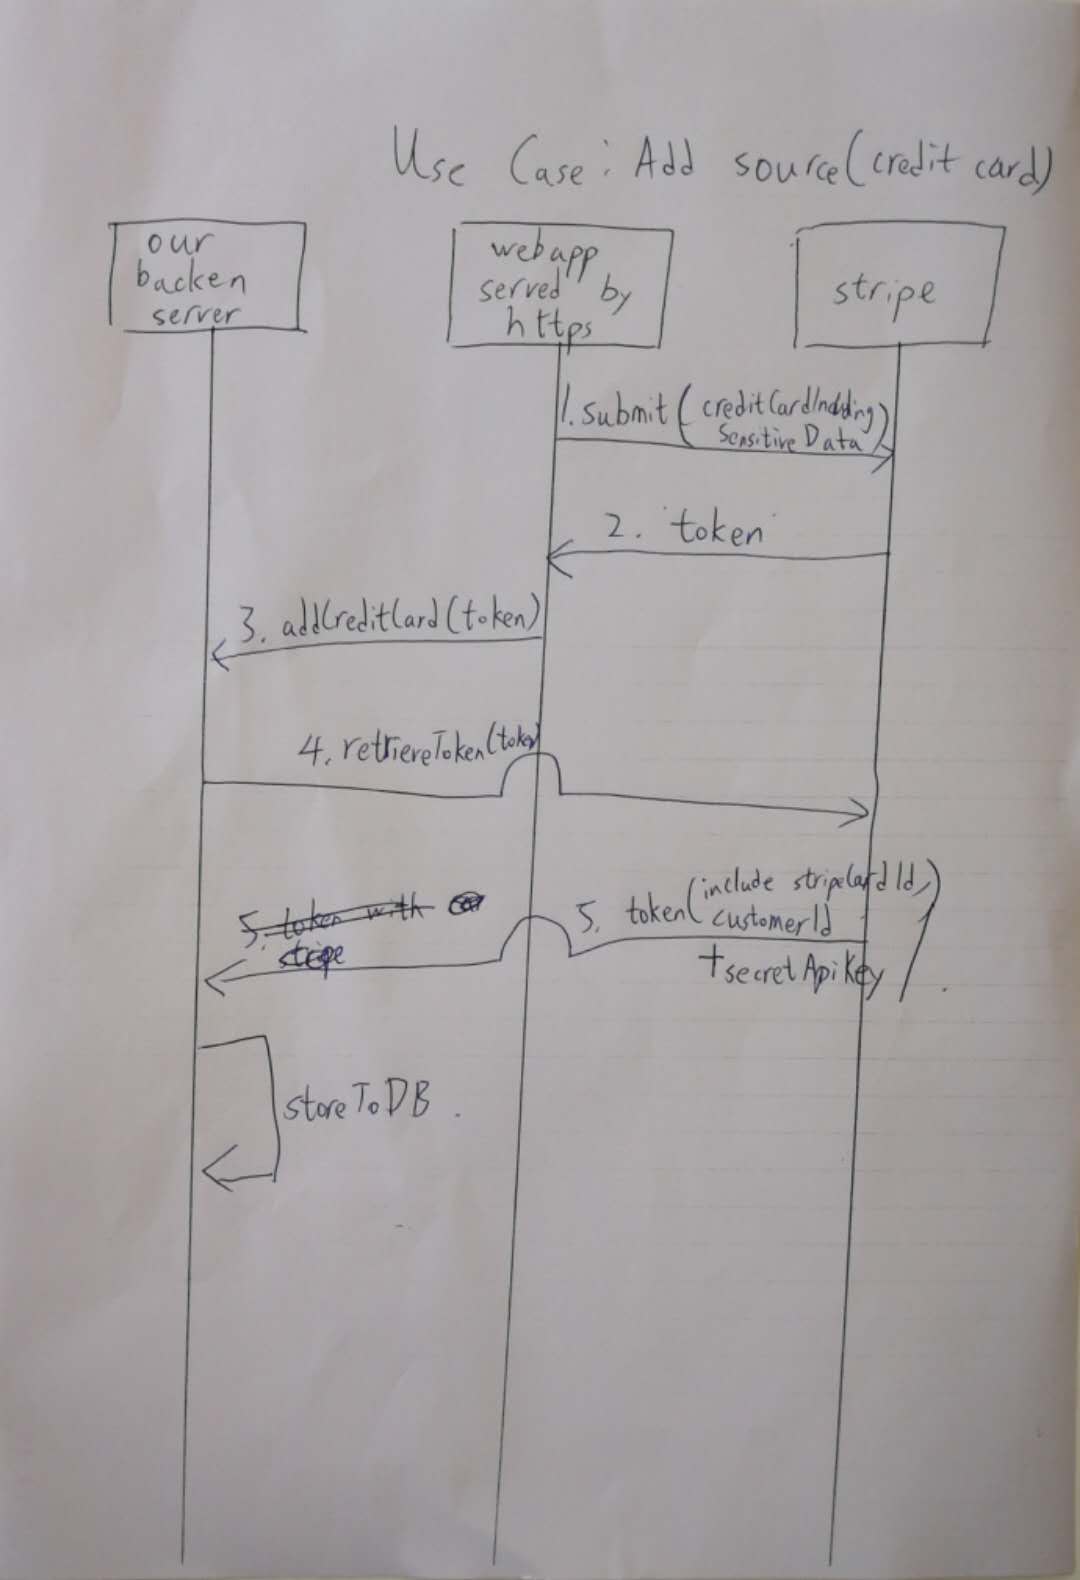 Use Case: Add source(credit card)
our
backen
server
webapp
served by
https
stripe
1. submit (creditCardIncluding
Sensitive Data)
2. token
3. addCreditCard(token)
4. retrieveToken(token
5. token with
stripe
5. token(include stripeCardId,
customerId
+secretApiKey)
storeToDB.